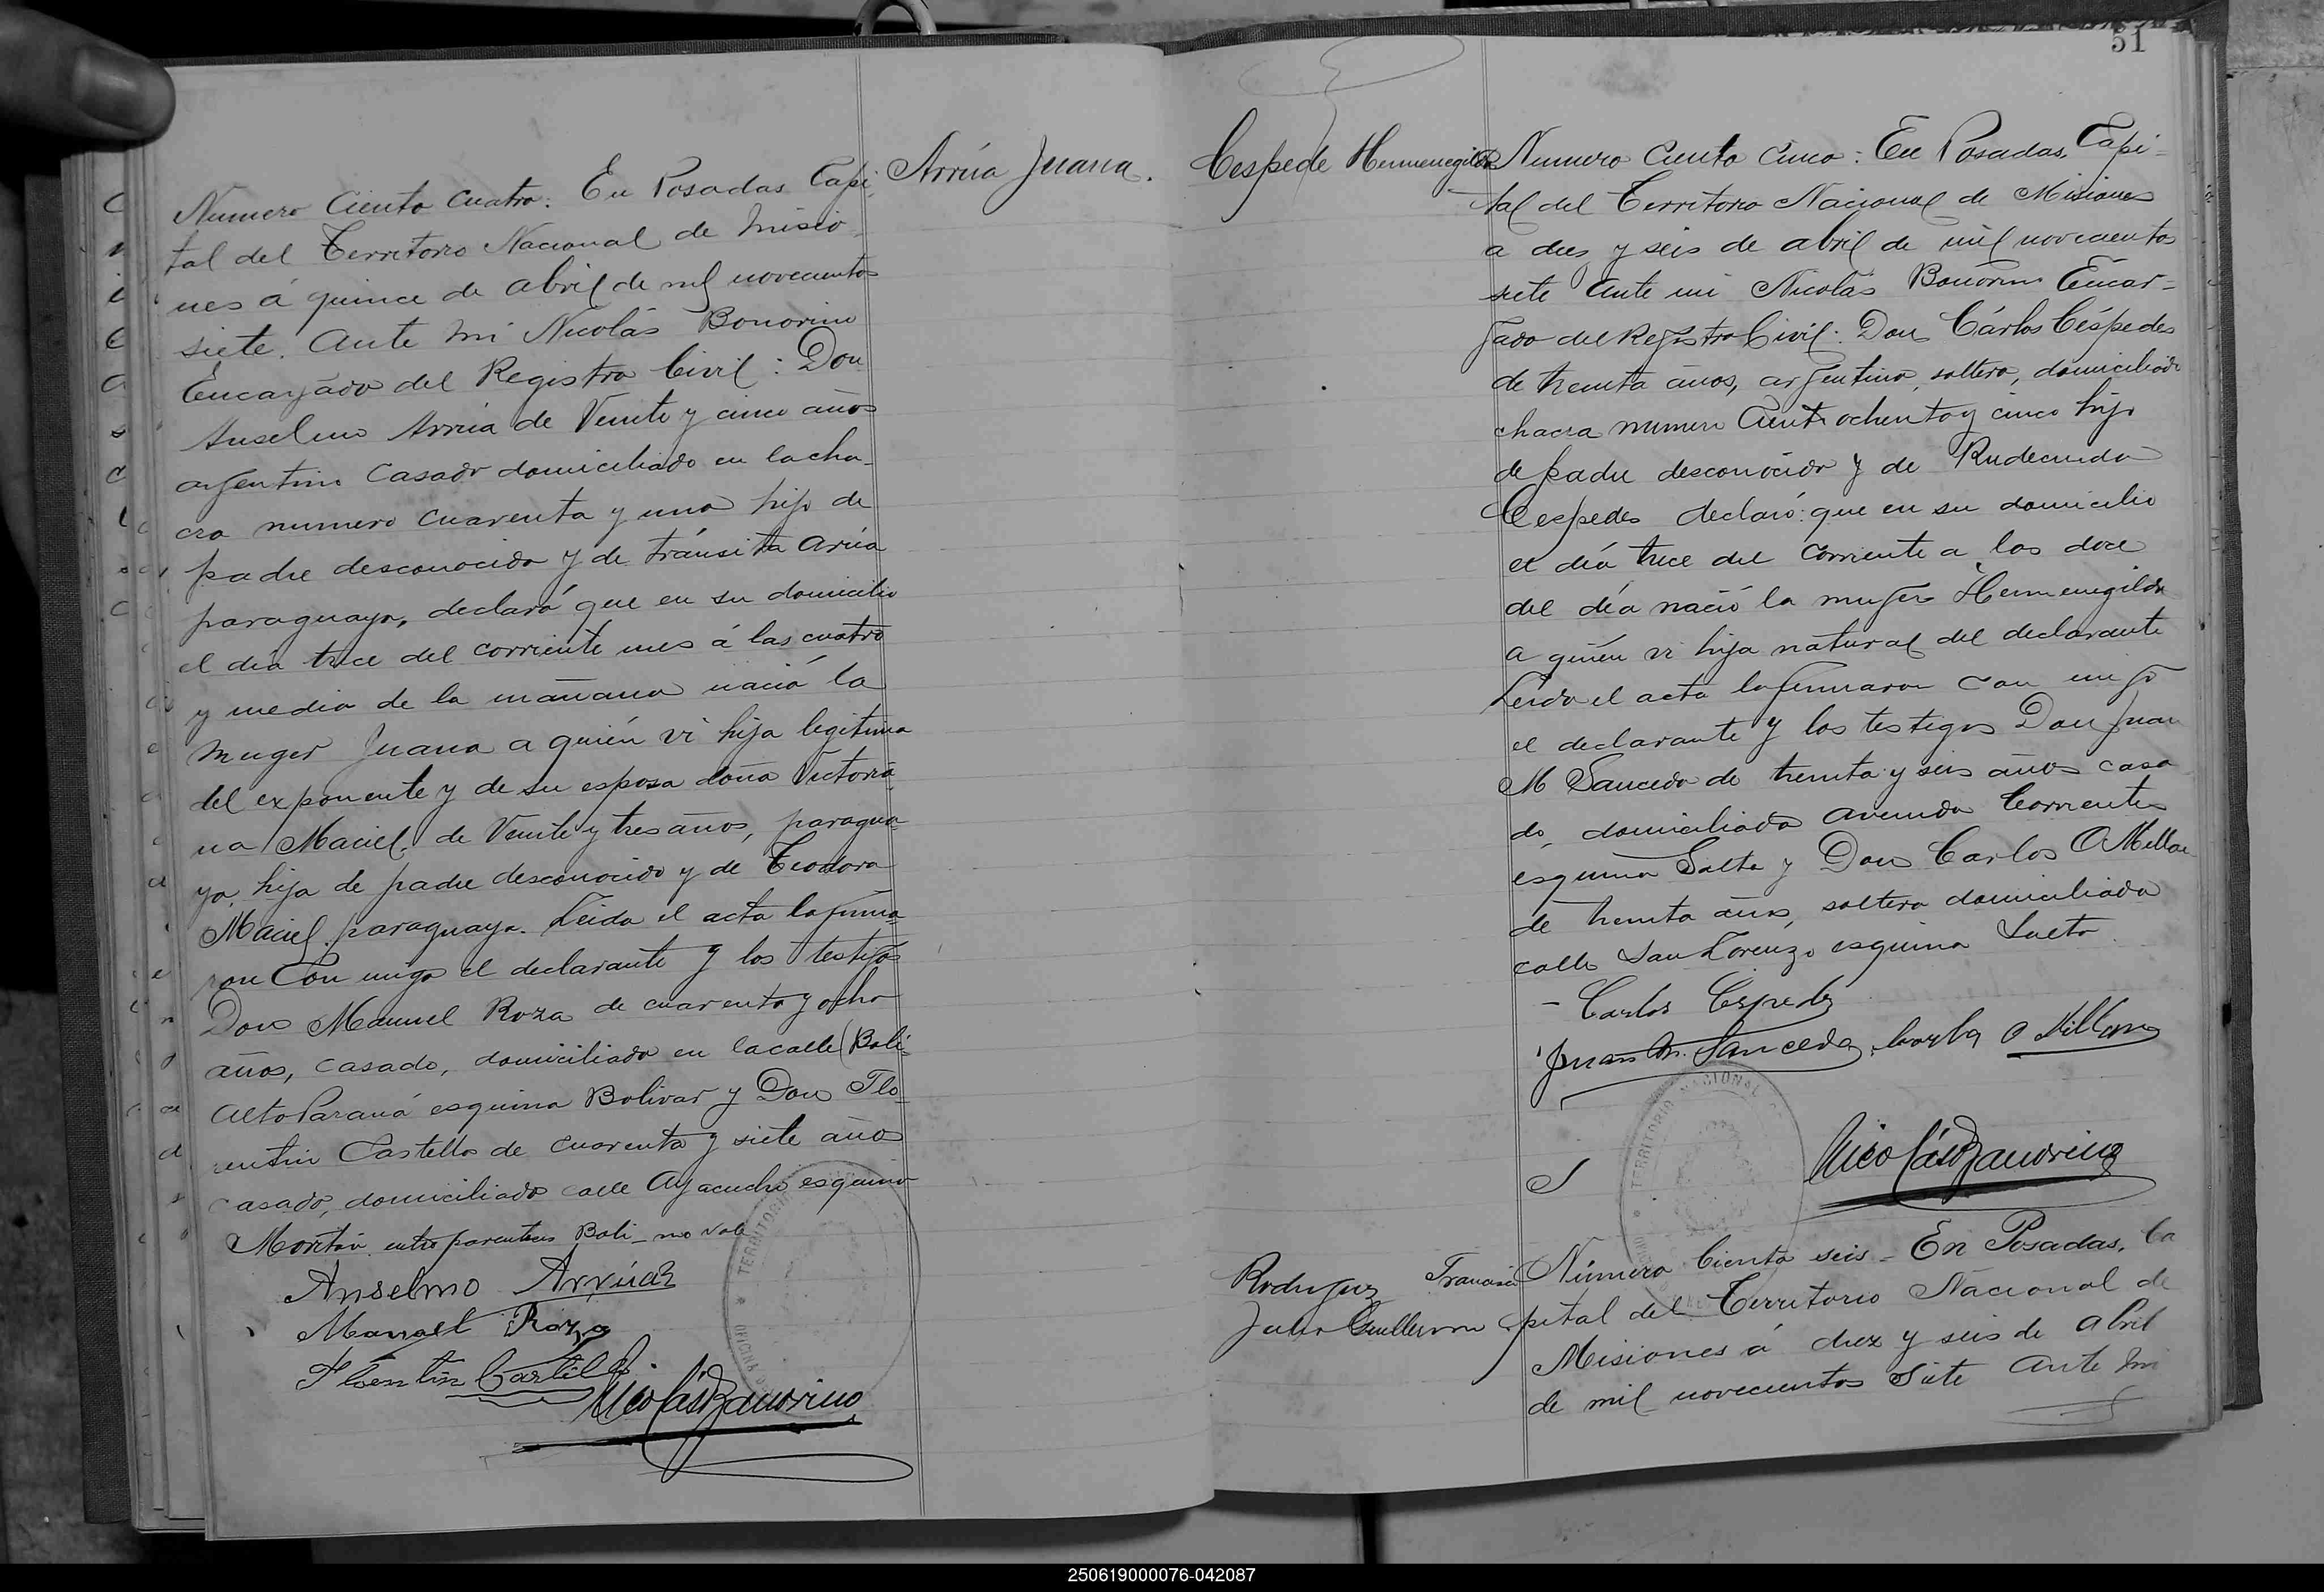 Arrúa Juana.
Numero Ciento cuatro. En Posadas Capi-
tal del Territorio Nacional de Misio-
nes á quince de abril de mil novecientos
siete. Ante mi Nicolás Bonorino
Encargado del Registro Civil: Don
Anselmo Arrúa de Veinte y cinco años
argentino casado domiciliado en la cha-
cra numero cuarenta y una hijo de
padre desconocido y de tránsita Arúa
paraguaya, declaró que en su domicilio
el día trece del corriente mes á las cuatro
y media de la mañana nació la
muger Juana a quién vi hija legitima
del exponente y de su esposa doña Victoria-
na Maciel, de Veinte y tres años, paragua-
ya, hija de padre desconocido y de Teodora
Maciel paraguaya. Leida el acta la firma-
ron Con migo el declarante y los testigos
Don Manuel Roza de cuarenta y ocho
años, casado, domiciliado en la calle (Boli-
Alto Paraná esquina Bolivar y Don Flo-
rentin Castello de cuarenta y siete años
casado, domiciliado calle Ayacucho esquina
entre parentesis Boli- no vale
Anselmo Arrúa
Manuel Roza
Florentín Castillo
Nicolás Bonorino
51
Cespede Hermenegilda
Numero Ciento Cinco: En Posadas, Capi-
tal del Territorio Nacional de Misiones
a dies y seis de abril de mil novecientos
siete Ante mi Nicolás Bonorino Encar-
gado del Registro Civil: Don Cárlos Céspedes
de treinta años, argentino, soltero, domiciliado
chacra numero Ciento ochenta y cinco hijo
de padre desconocido y de Rudecinda
Cespedes declaró: que en su domicilio
el día trece del corriente a las doce
del día nació la muger Hermenegilda
a quién vi hija natural del declarante
Leida el acta la firmaron con migo
el declarante y los testigos Don Juan
M Saucedo de treinta y seis años casa
do, domiciliado avenida Corrientes
esquina Salta y Don Carlos O Millan
de treinta años, soltero domiciliado
calle San Lorenzo esquina
Carlos Cespedes
Juan M. Saucedo, Carlos O Millan
TERRITORIO NACIONAL
Nicolás Bonorino
Rodriguez Francisco
Julio Guillermo
Número Ciento seis - En Posadas, Ca
pital del Territorio Nacional de
Misiones á diez y seis de Abril
de mil novecientos Siete Ante mi
250619000076-042087